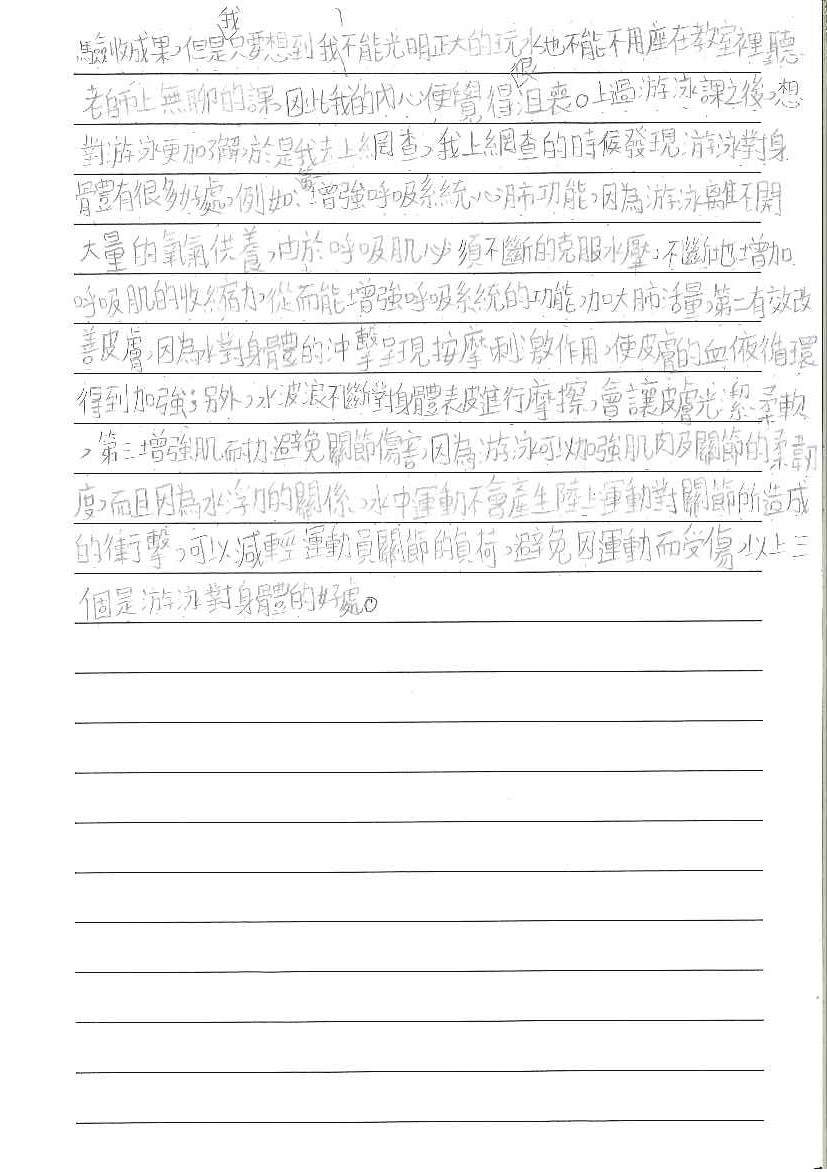 驗收成果,但是我只要想到我不能光明正大的玩水也不能不用座在教室裡聽
老師上無聊的課因此我的內心便覺得很沮喪。上過游泳課之後,想
對游泳更加了解,於是我去上網查,我上網查的時候發現游泳對身
體有很多好處,例如:第一增強呼吸系統心肺功能,因為游泳離不開
大量的氧氣供養,由於呼吸肌必須不斷的克服水壓,不斷地增加
呼吸肌的收縮力,從而能增強呼吸系統的功能,加大肺活量,第二有效改
善皮膚,因為水對身體的沖擊呈現按摩刺激作用,使皮膚的血液循環
得到加強;另外,水波浪不斷對身體表皮進行摩擦,會讓皮膚光潔柔軟
,第三增強肌耐力避免關節傷害,因為游泳可以加強肌肉及關節的柔韌
度,而且因為水浮力的關係,水中運動不會產生陸上運動對關節所造成
的衝擊,可以減輕運動員關節的負荷,避免因運動而受傷,以上三
個是游泳對身體的好處。